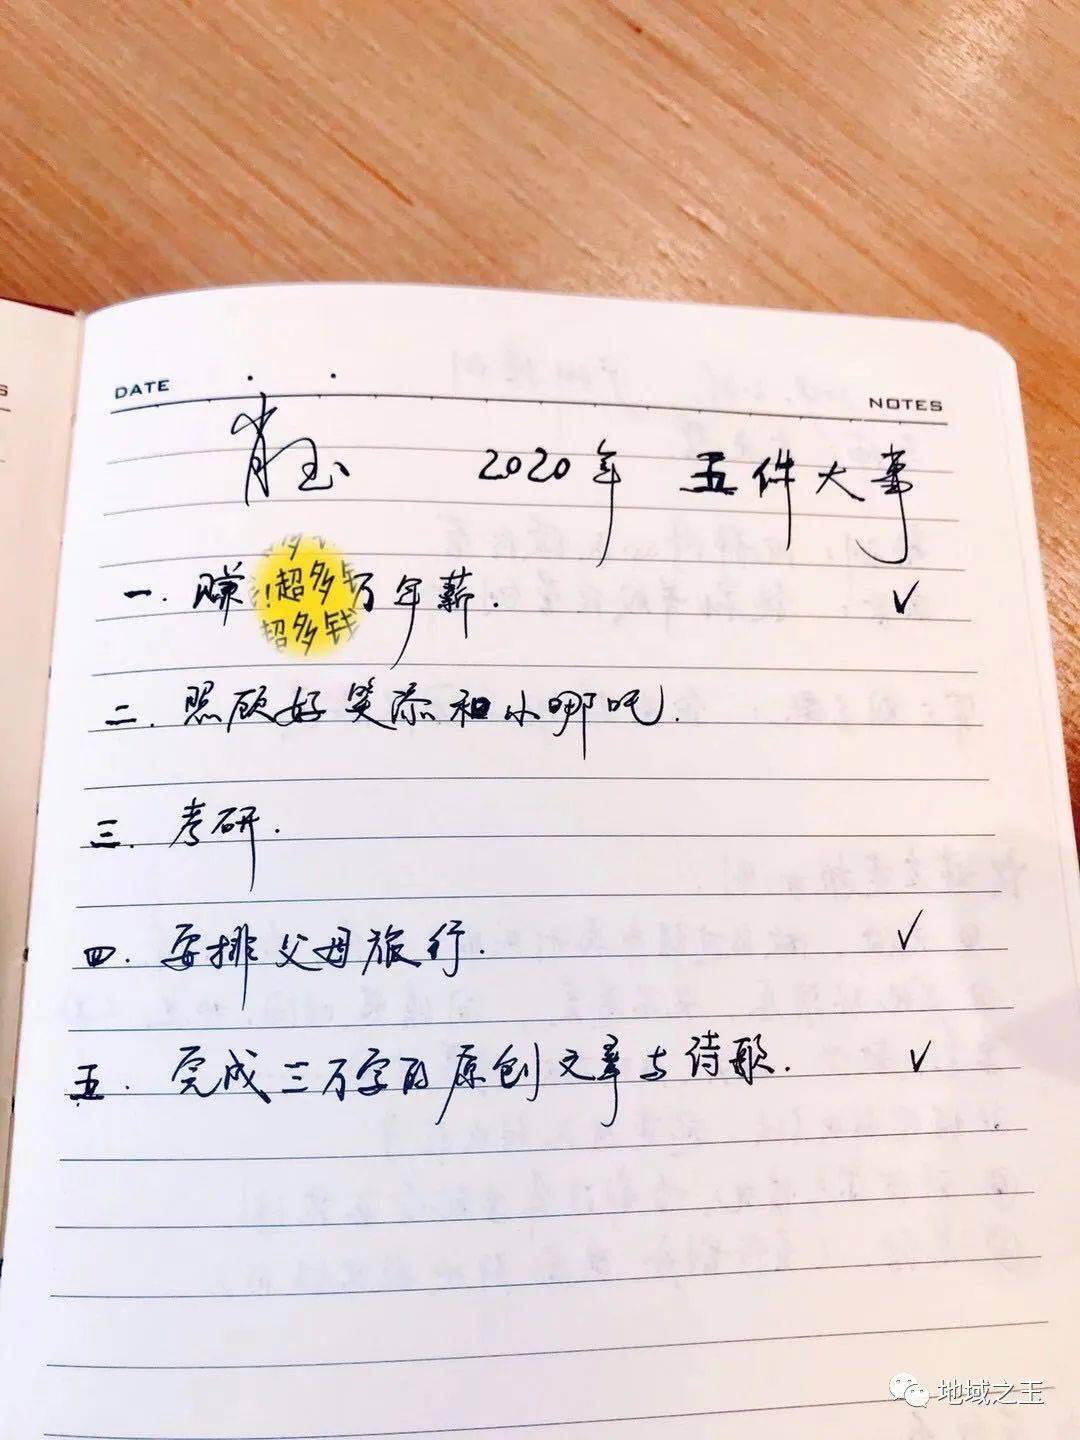 DATE
NOTES
肖玉 2020年 五件大事
一. 赚 !超多钱 万年薪. ✓
超多钱
二. 照顾好笑添和小哪吒.
三. 考研.
四. 安排父母旅行. ✓
五. 完成三万字的原创文章与诗歌. ✓
地域之玉